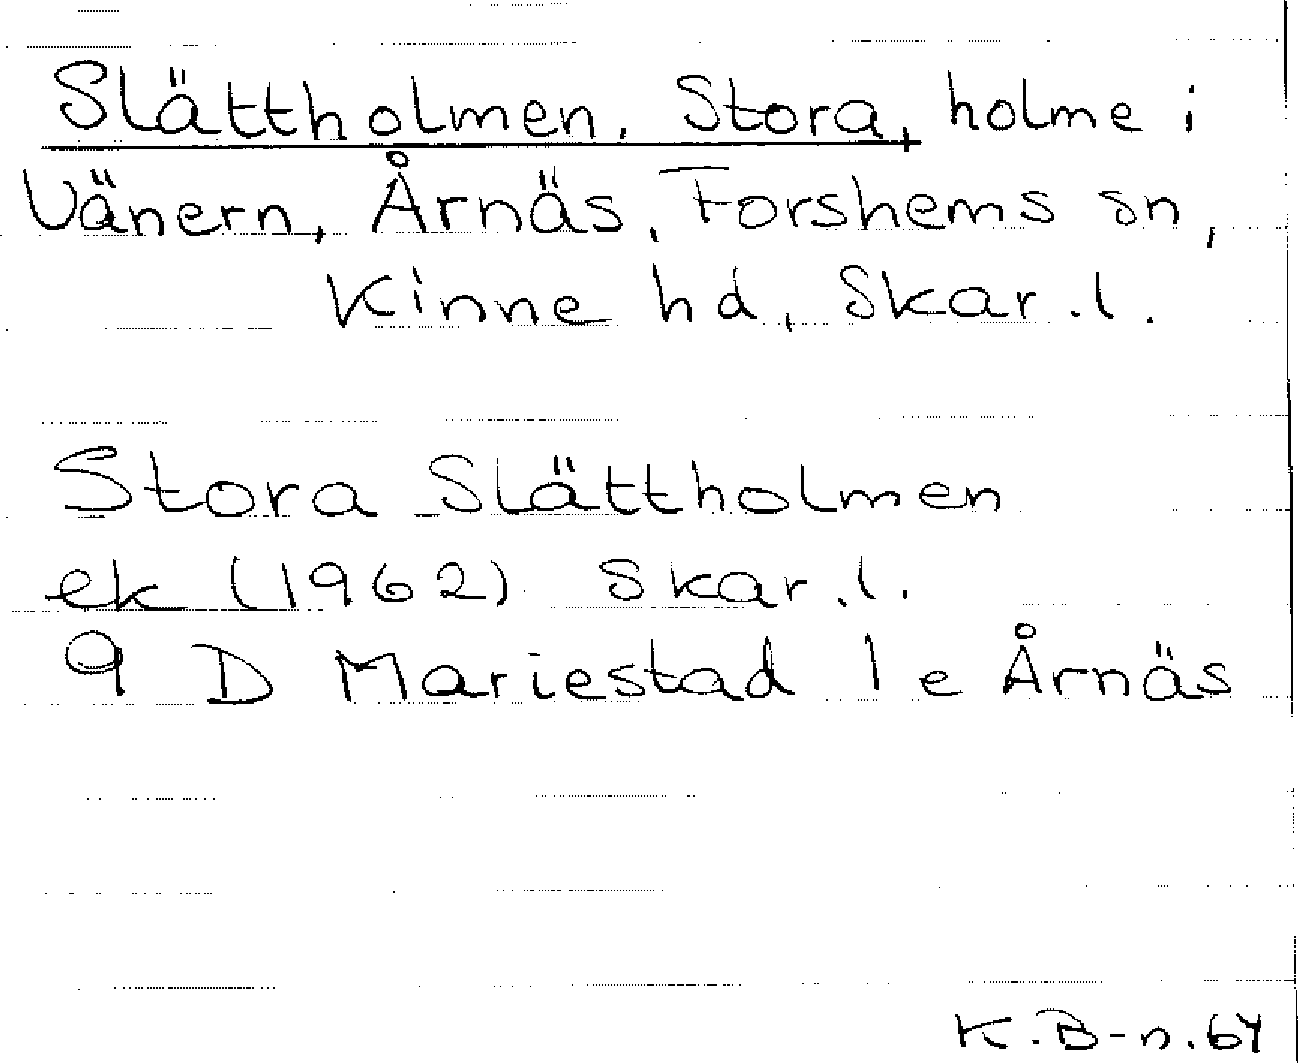 Slättholmen, Stora, holme i
Vänern, Årnäs, Forshems sn,
Kinne hd, Skar.l.
Stora Slättholmen
ek (1962) Skar.l.
9 D Mariestad 1 e Årnäs
K.B-n.64